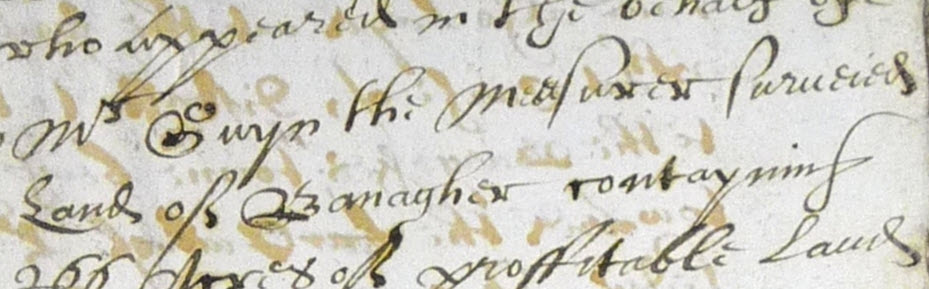 who appeared in the behalf of
Mr Gwyn the Measurer surveied
Land of Banagher contayning
266 Acres of proffitable Land